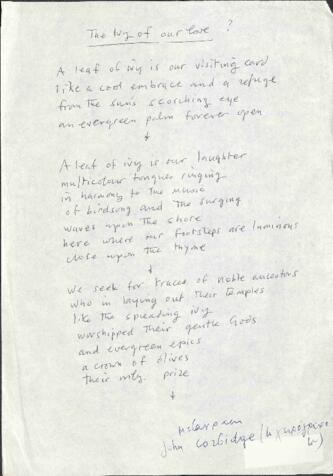 The Ivy of our love ?
A leaf of ivy is our visiting card
like a cool embrace and a refuge
from the sun's scorching eye
an evergreen palm forever open
A leaf of ivy is our laughter
multicolour tongues ringing
in harmony to the music
of birdsong and the surging
waves upon the shore
here where our footsteps are luminous
close upon the thyme
We seek for traces of noble ancestors
who in laying out their temples
like the spreading ivy
worshipped their gentle Gods
and evergreen epics
a crown of olives
their only prize
John Corbidge